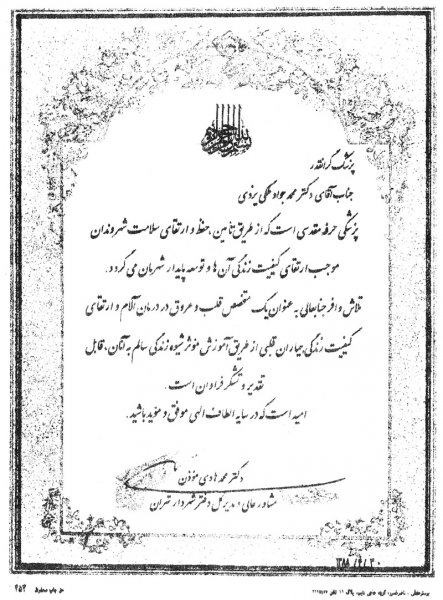 پزشک گرانقدر
جناب آقای دکتر محمد جواد ملکی یزدی
پزشکی حرفه مقدسی است که از طریق تأمین، حفظ و ارتقای سلامت شهروندان
موجب ارتقای کیفیت زندگی آن ها و توسعه پایدار شهرمان می گردد.
تلاش وافر جنابعالی به عنوان یک متخصص قلب و عروق در درمان آلام و ارتقای
کیفیت زندگی بیماران قلبی از طریق آموزش موثر شیوه زندگی سالم به آنان، قابل
تقدیر و تشکر فراوان است.
امید است که در سایه الطاف الهی موفق و موید باشید.
دکتر محمد هادی موذن
مشاور عالی و مدیرکل دفتر شهردار تهران
حق چاپ محفوظ